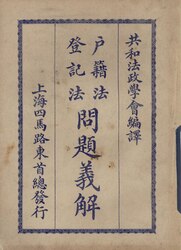 共和法政學會編譯
戶籍法
登記法
問題義解
上海四馬路東首總發行